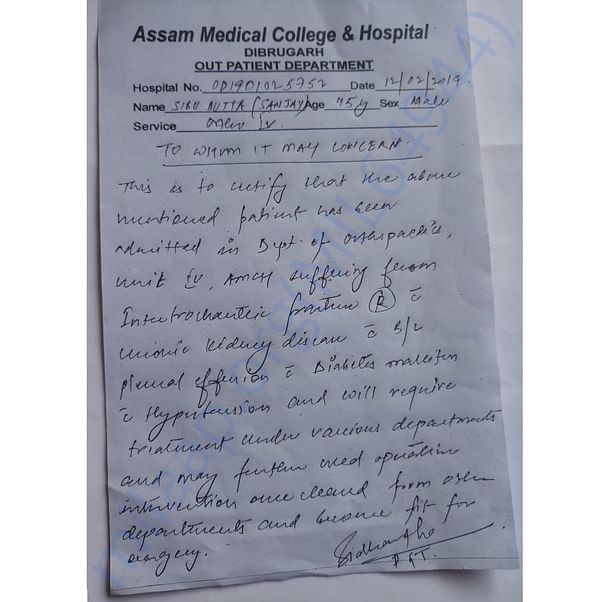 Assam Medical College & Hospital
DIBRUGARH
OUT PATIENT DEPARTMENT
Hospital No. OP1901025752 Date 12/02/2019.
Name SIBU DUTTA (SANJAY) Age 45y Sex Male
Service Ortho IV.
TO WHOM IT MAY CONCERN.
This is to certify that the above
mentioned patient has been
admitted in Dept. of orthopaedics,
unit IV, AMCH suffering from
Intertrochanteric fracture (R) c̄
chronic kidney disease c̄ B/L
pleural effusion c̄ Diabetes mellitus
c̄ Hypertension and will require
treatment under various departments
and may further need operative
intervention once cleared from other
departments and become fit for
surgery.
P.G.T.